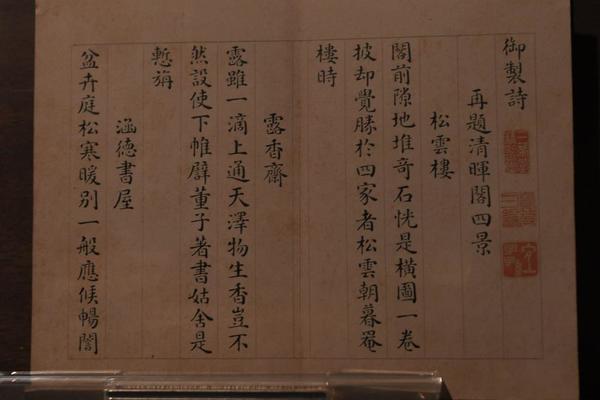 御製詩
再題清暉閣四景
松雲樓
閣前隙地堆奇石恍是橫圖一卷
披却覺勝於四家者松雲朝暮罨
樓時
露香齋
露雖一滴上通天澤物生香豈不
然設使下帷闢董子著書姑舍是
慙旃
涵德書屋
盆卉庭松寒暖別一般應候暢誾